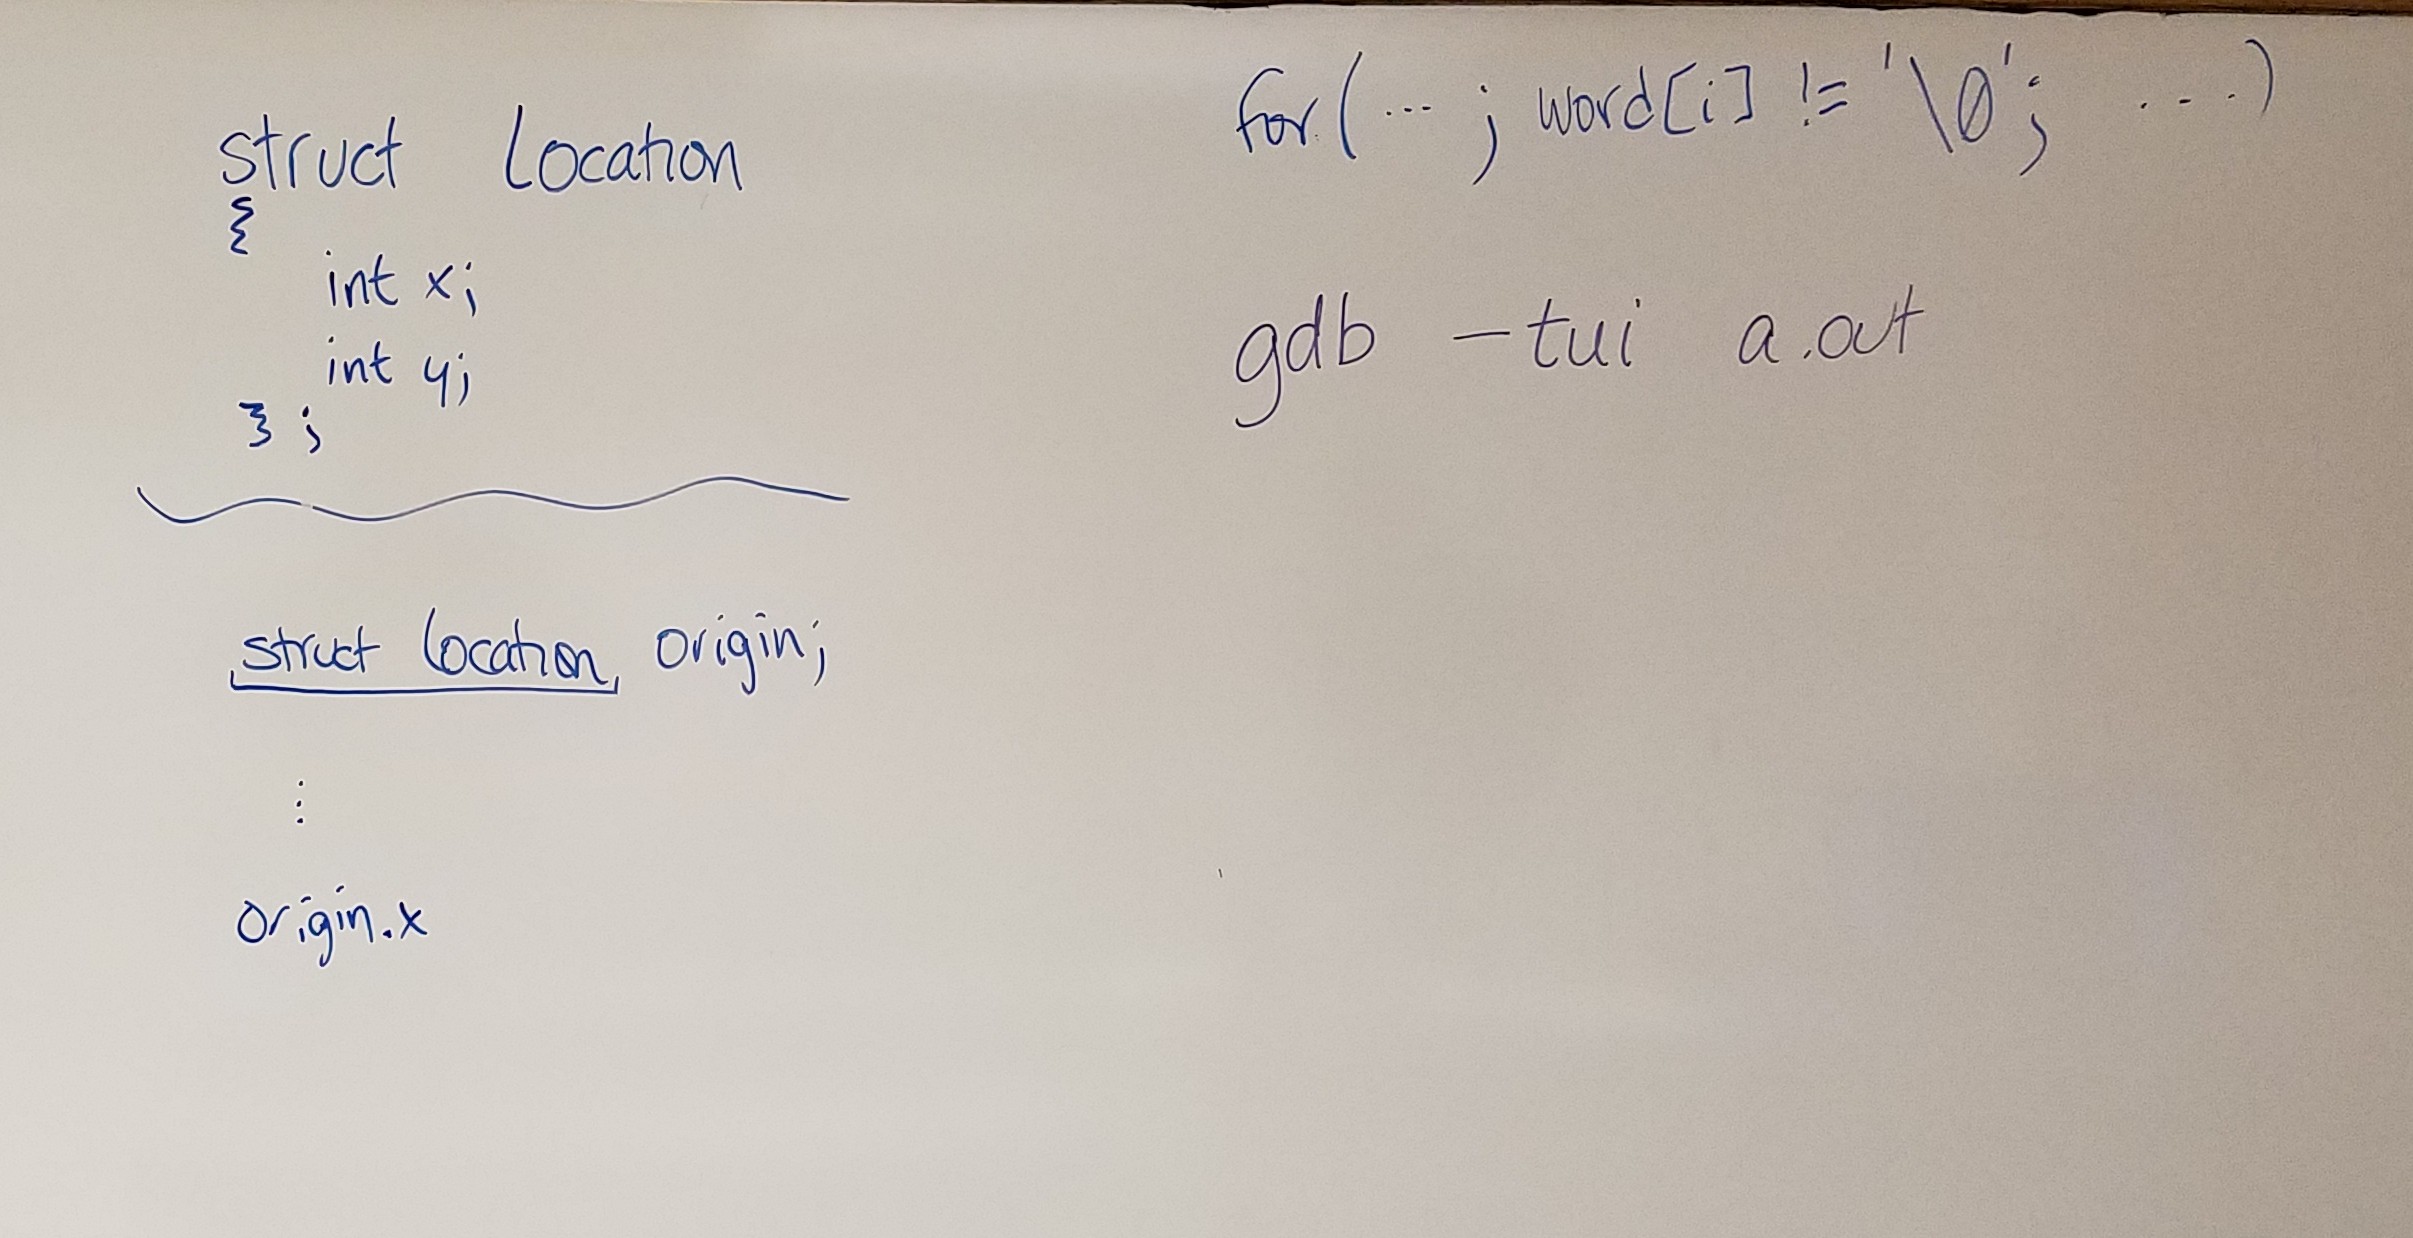 struct location
{
int x;
int y;
};
struct location origin;
⋮
origin.x
for(... ; word[i] != '\0'; ...)
gdb -tui a.out